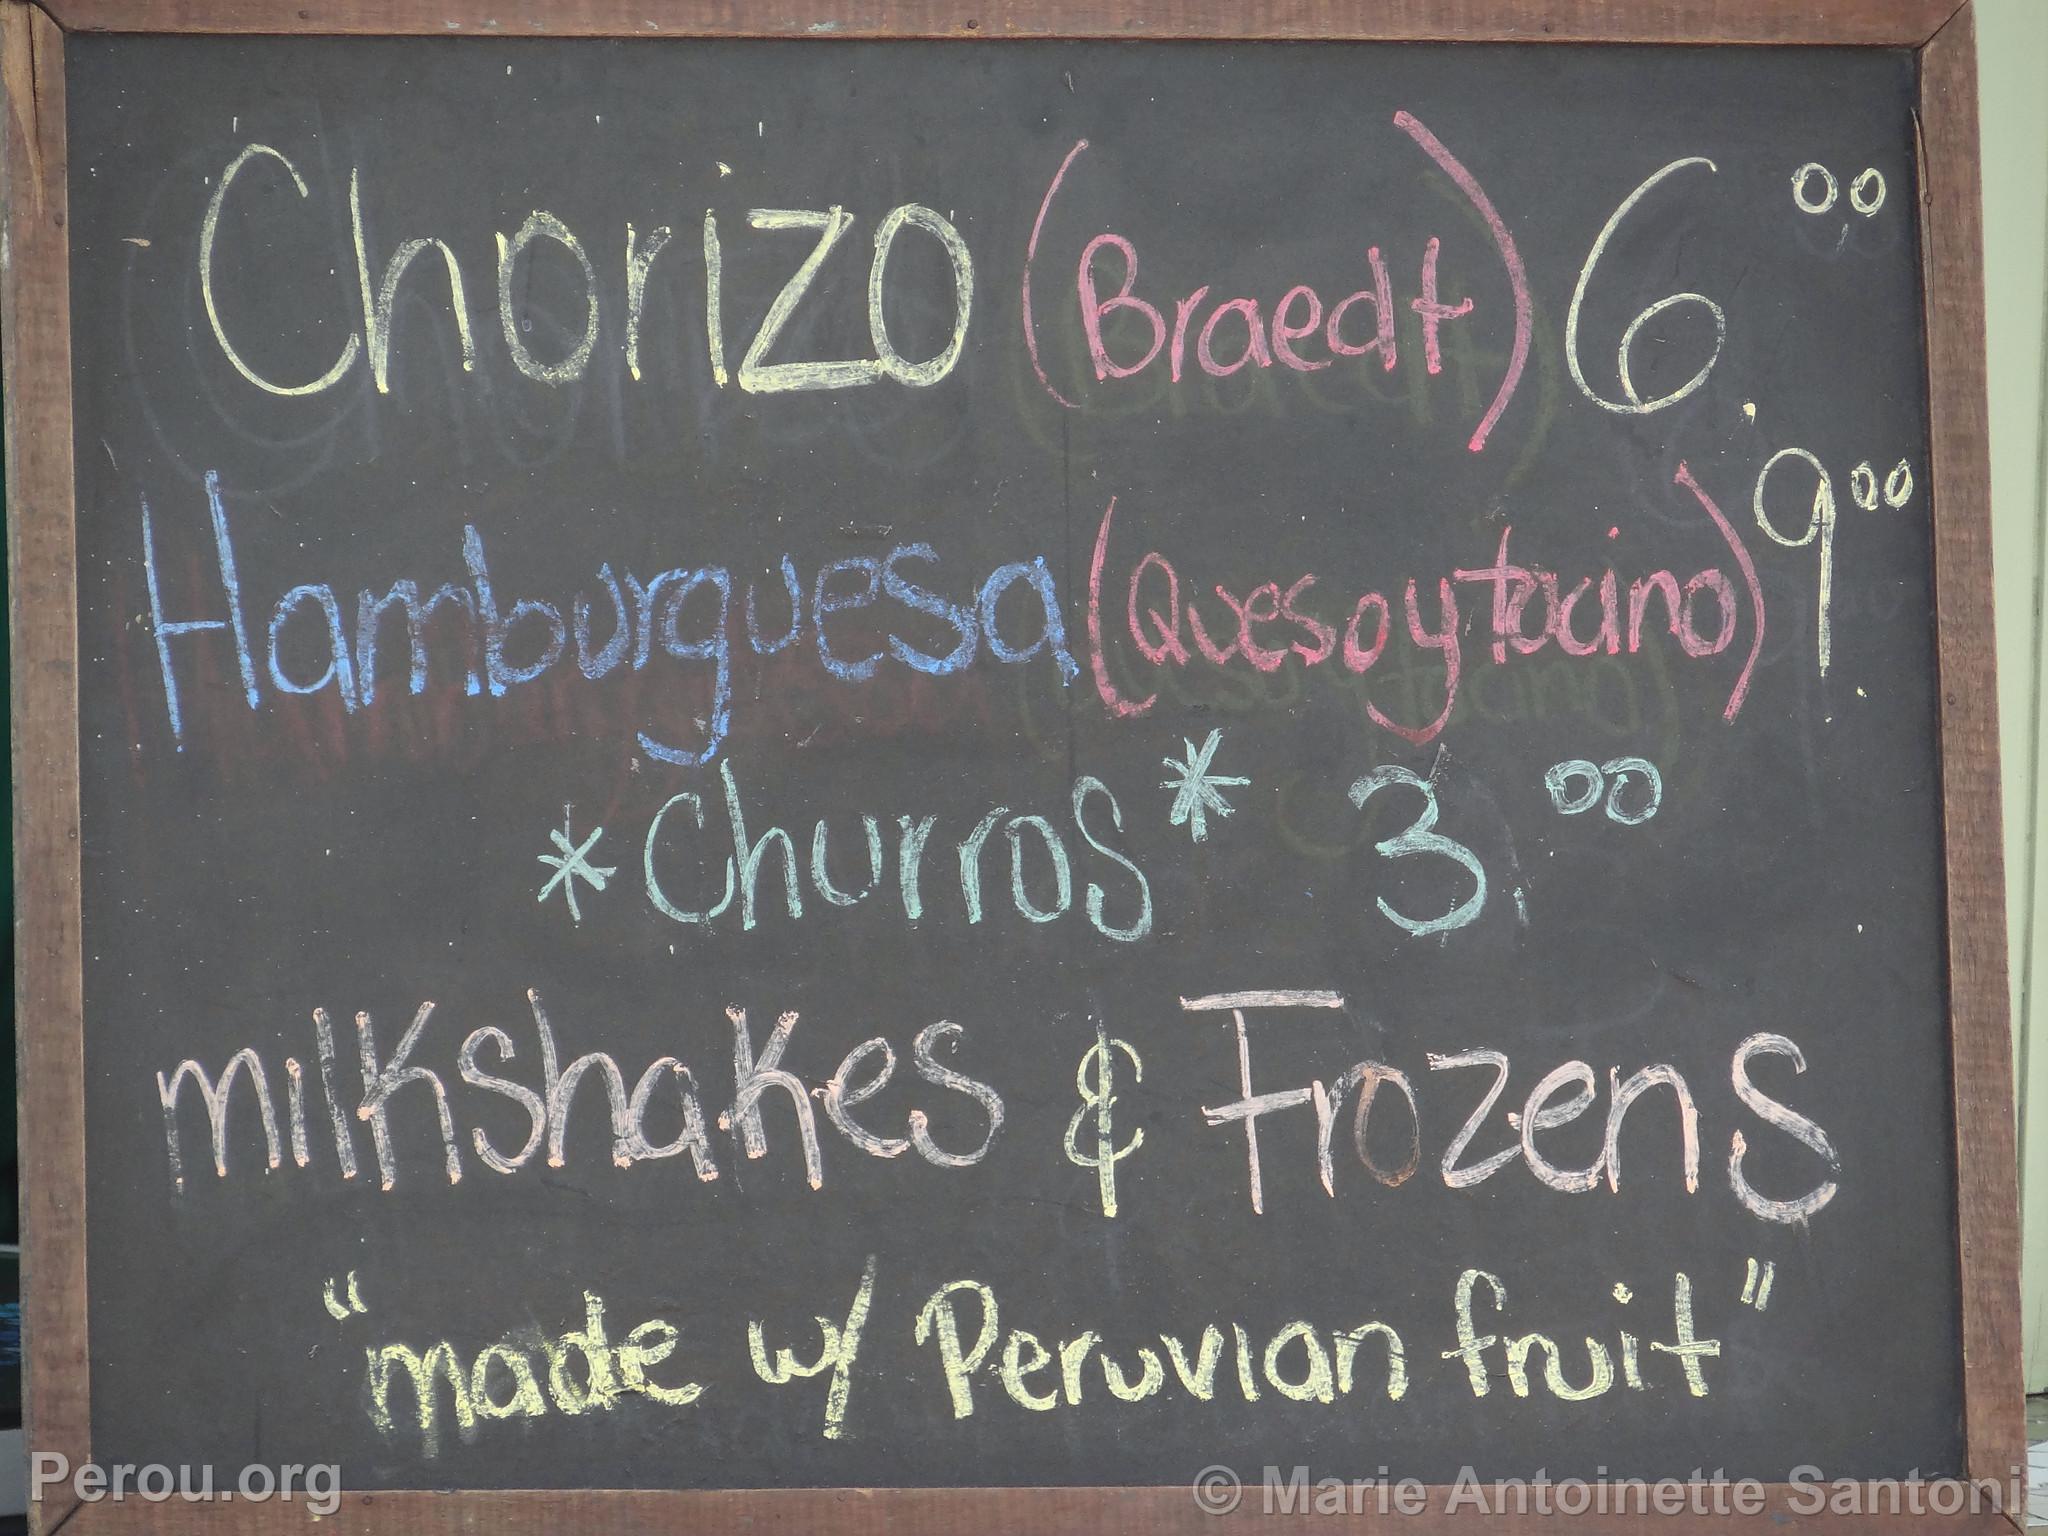 Chorizo (Braedt) 6.00
Hamburguesa (Queso y tocino) 9.00
*Churros* 3.00
milkshakes & Frozens
"made w/ Peruvian fruit"
Perou.org
© Marie Antoinette Santoni